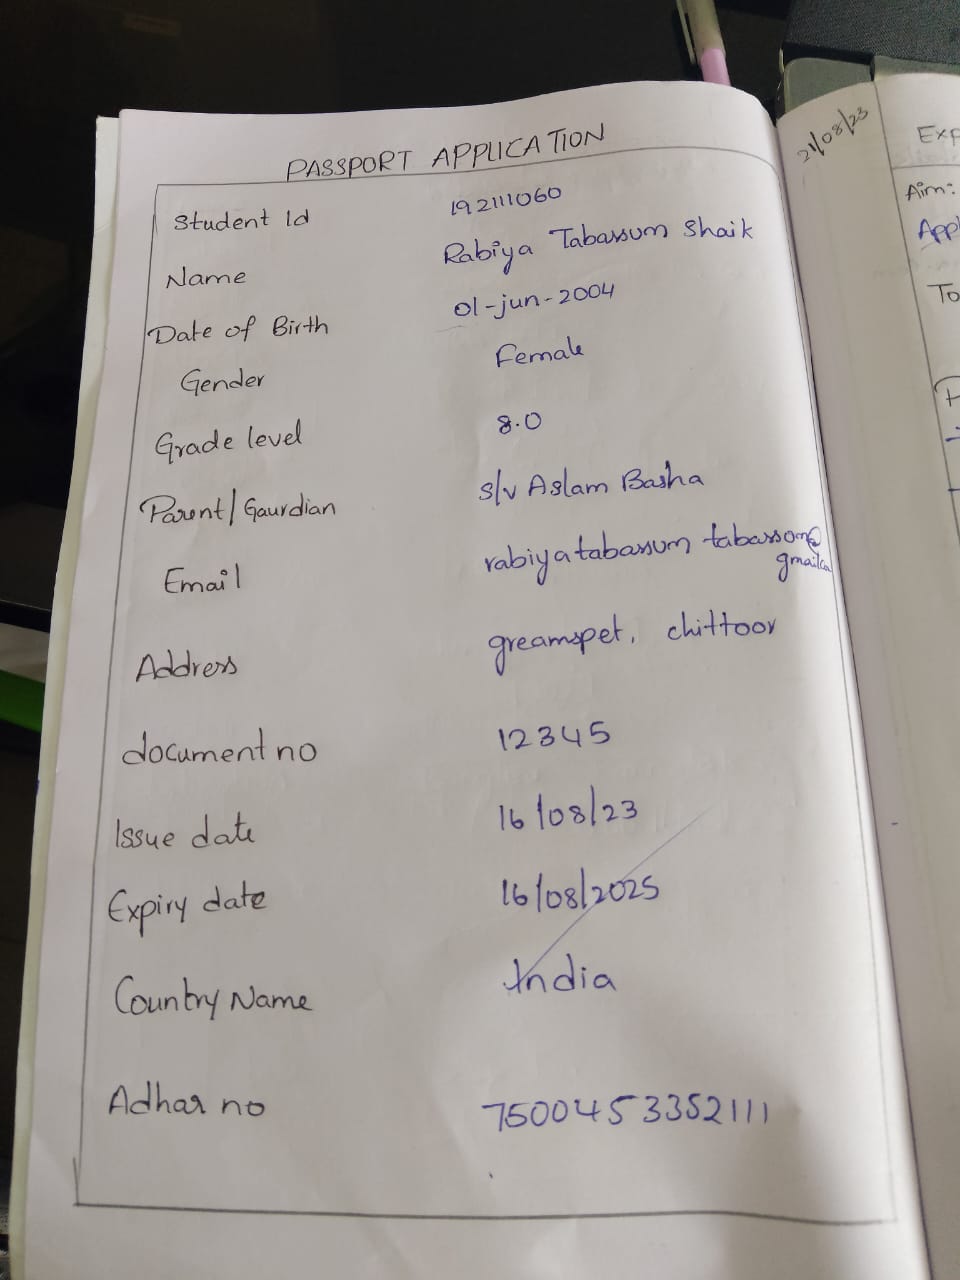 PASSPORT APPLICATION
Student Id 192111060
Name Rabiya Tabassum Shaik
Date of Birth 01-jun-2004
Gender Female
Grade level 8.0
Parent/Gaurdian s/v Aslam Basha
Email rabiyatabassum tabassom@
gmail.co
Address greamspet, chittoor
document no 12345
Issue date 16/08/23
Expiry date 16/08/2025
Country Name India
Adhar no 7500453352111
21/08/23
Exp
Aim:
Appl
To